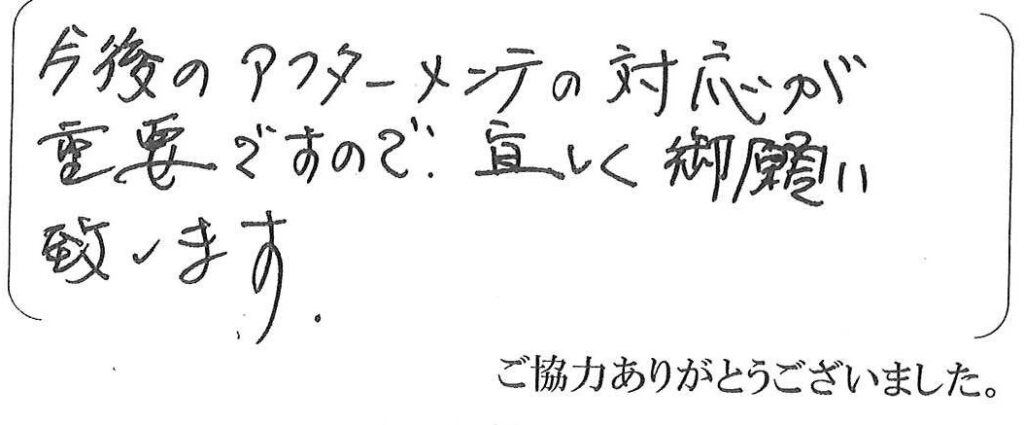 今後のアフターメンテの対応が
重要ですので、宜しく御願い
致します.
ご協力ありがとうございました。